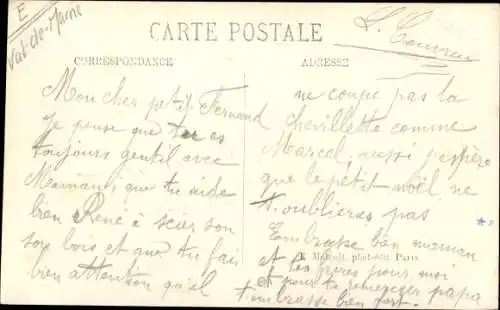 E
Val-de-Marne
CARTE POSTALE
CORRESPONDANCE
ADRESSE
Mon cher petit Fernand
Je pense que tu es
toujours gentil avec
Maman, que tu aide
bien René à scier son
son bois et que tu fais
bien attention qu'il
ne coupe pas la
chevillette comme
Marcel, aussi j'espère
que le petit noël ne
t'oublieras pas
Embrasse bien maman
et les frères pour moi
et pour te remercier papa
t'embrasse bien fort.
phot-édit Paris